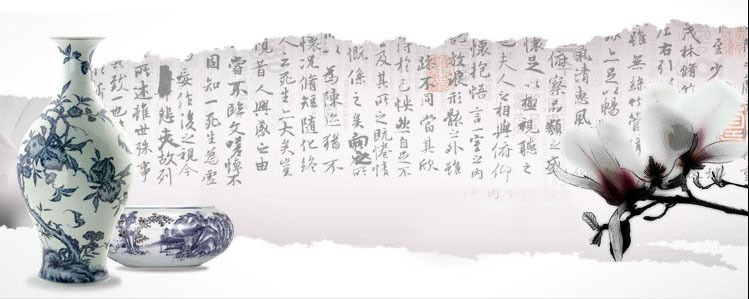 至少
茂林脩竹
左右引
雖無絲竹管弦
足以暢
氣清惠風
俯察品類之盛
懷足以極視聽之
夫人之相與俯仰
懷抱悟言一室之內
放浪形骸之外雖
殊不同當其欣
得於己怏然自足不
及其所之既惓情
既係之矣向之所
為陳迹猶不
懷況脩短隨化終
人云死生亦大矣豈
昔人興感之由
嘗不臨文嗟悼不
固知一死生為虛
妄作後之視今
悲夫故列
所述雖世殊事
致一也